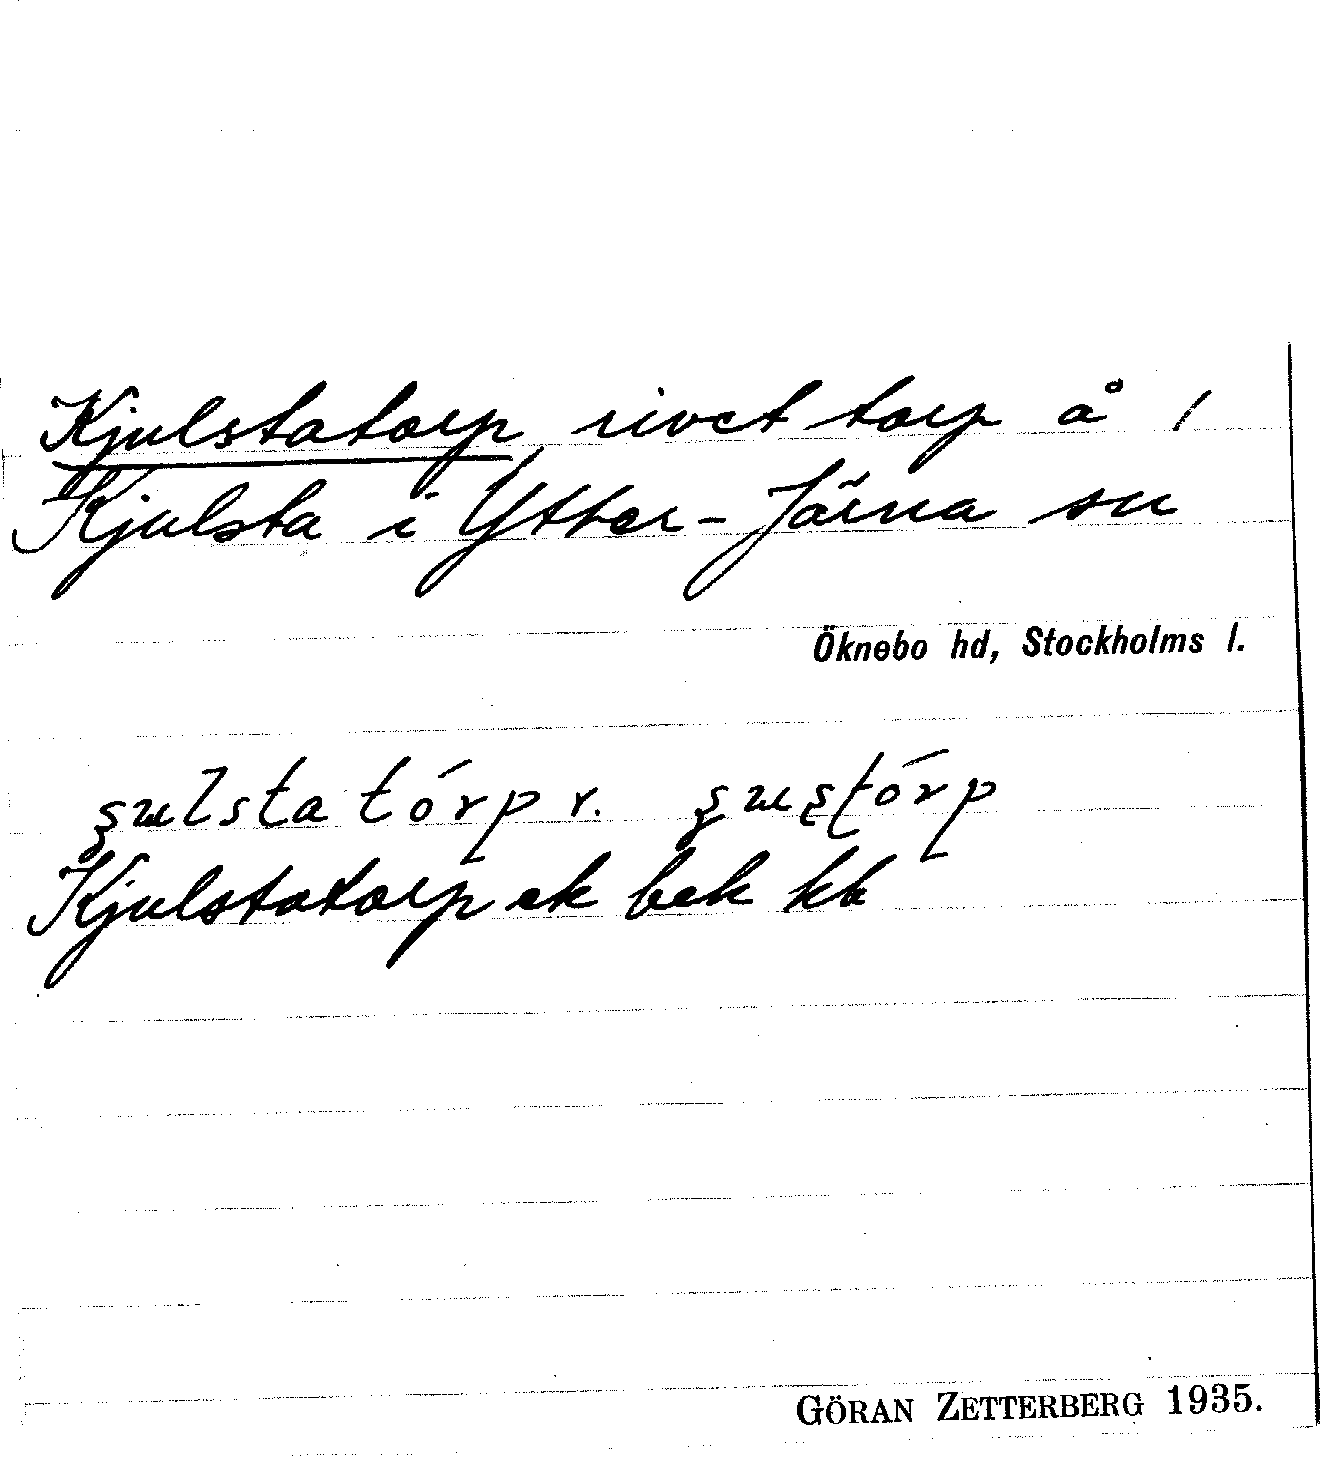 Kjulstatorp rivet torp å /
Kjulsta i Ytter-Järna sn
Öknebo hd, Stockholms l.
ʂulsta tórp r. ʂuʂtórp
Kjulstatorp ek bek kb
GÖRAN ZETTERBERG 1935.